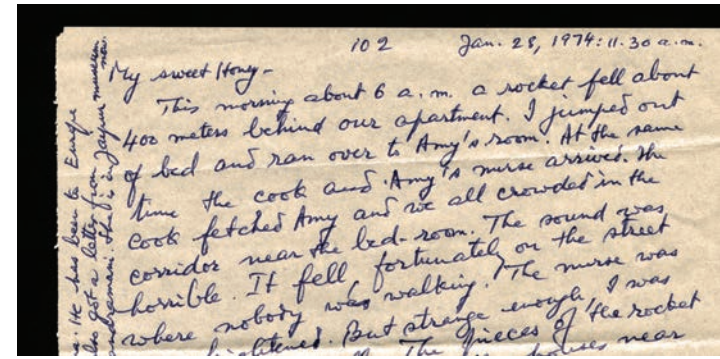 102 Jan. 28, 1974: 11.30 a.m.
My sweet Honey -
This morning about 6 a.m. a rocket fell about
400 meters behind our apartment. I jumped out
of bed and ran over to Amy's room. At the same
time the cook and Amy's nurse arrived. The
cook fetched Amy and we all crowded in the
corridor near the bed-room. The sound was
horrible. It fell fortunately on the street
where nobody was walking. The nurse was
But strange enough, I was
The pieces of the rocket
houses near
He has been to Europe
also got a letter from
She is in Jaypur museum
now.